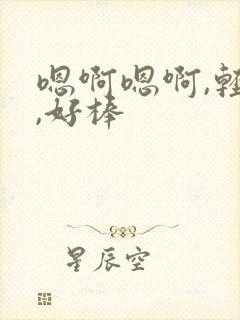 嗯啊嗯啊,輕
,好棒
星辰空